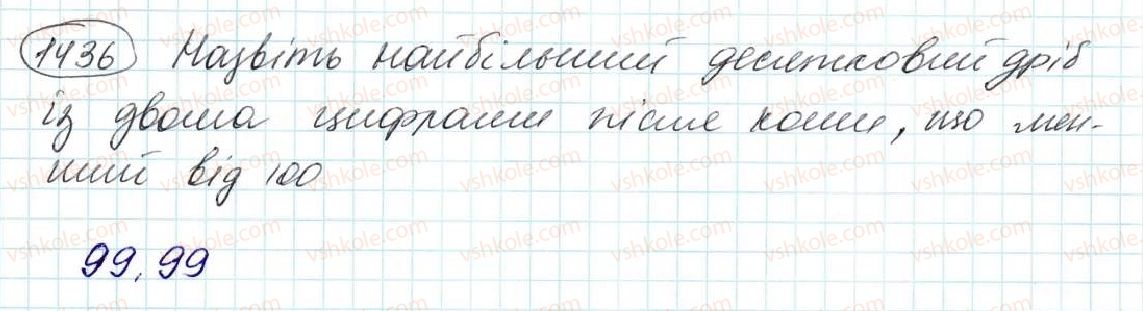 1436 Назвіть найбільший десятковий дріб
із двома цифрами після коми, що мен-
ший від 100
99,99